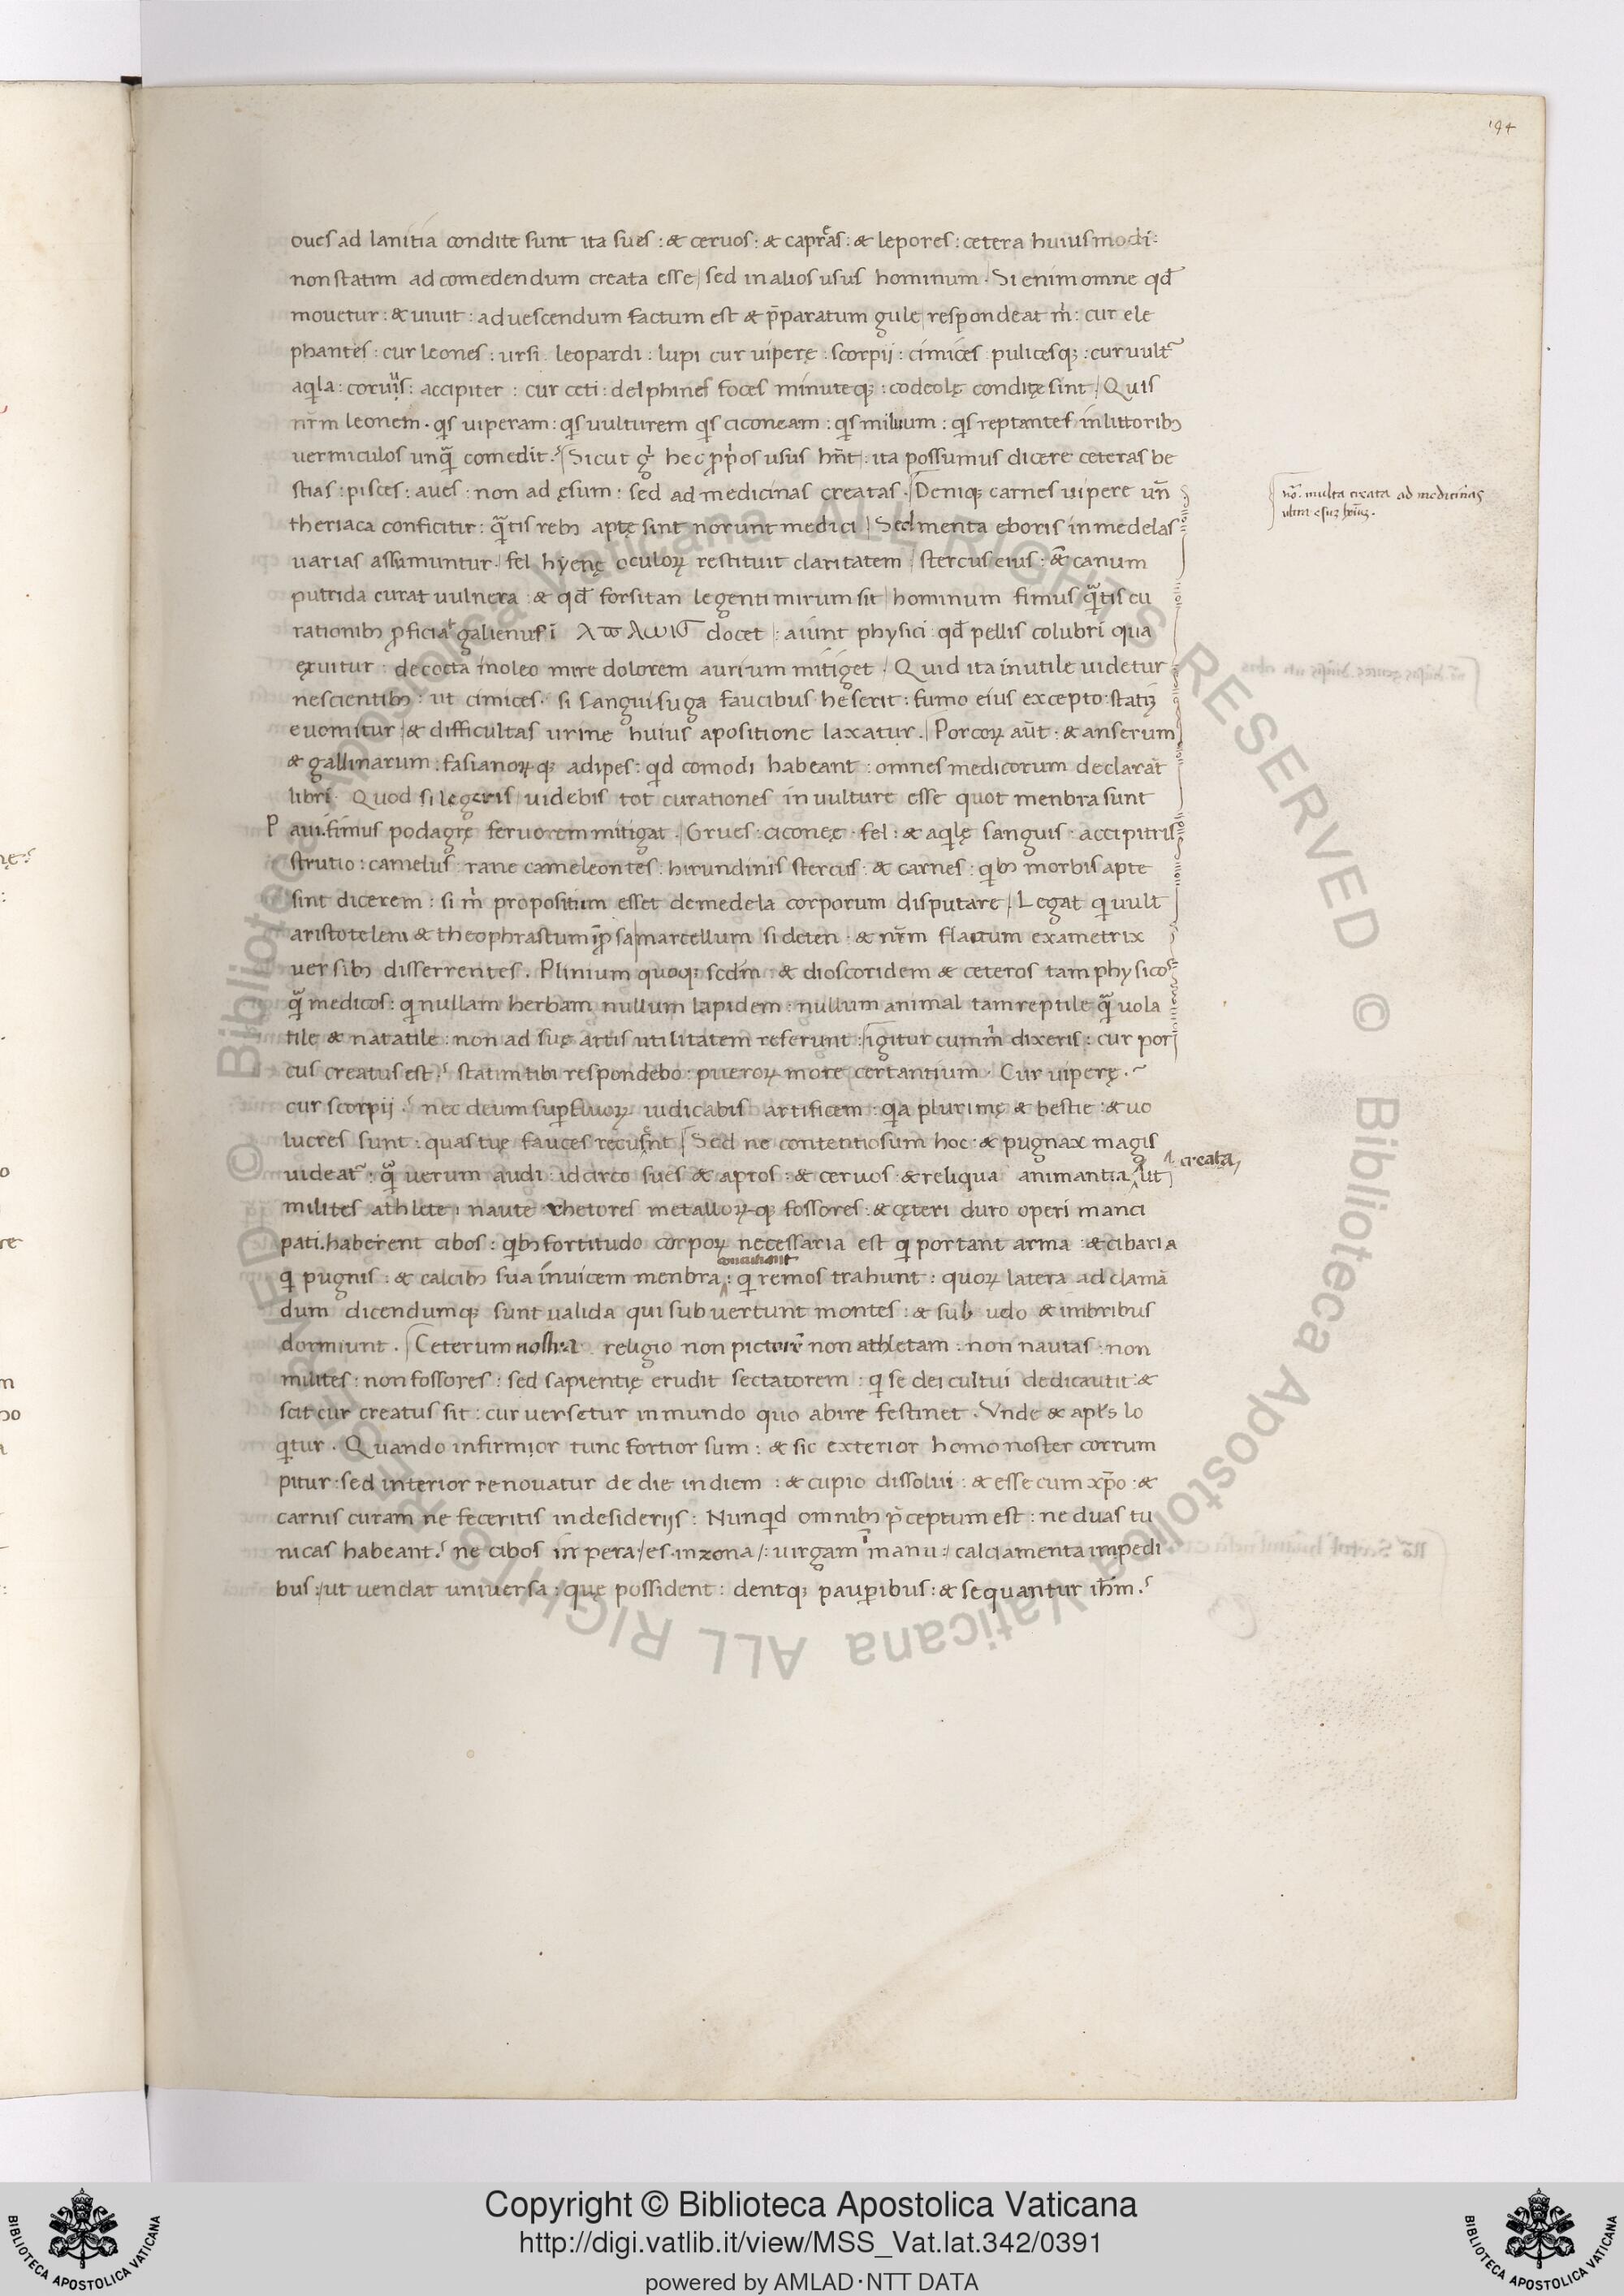 194
oues ad lanitia condite sunt ita sues : & ceruos : & capreas : & lepores : cetera huiusmodi :
non statim ad comedendum creata esse / sed in alios usus hominum . Si enim omne qd̄
mouetur : & uiuit : ad uescendum factum est & p̄paratum gule / respondeat m̊ : cur ele
phantes : cur leones : ursi . leopardi : lupi cur uiperę : scorpij : cimices pulicesq; : cur uult᷑
aqͥla : coruus : accipiter : cur ceti : delphines foces minuteq; : codeolę conditę sint / Quis
nr̄m leonem . qͥs uiperam : qͥs uulturem qͥs ciconeam : qͥs miluum : qͥs reptantes in littorib;
uermiculos unqͣ comedit . Sicut gͥ hec ꝓpͥos usus hn̄t : ita possumus dicere ceteras be
stias : pisces : aues : non ad ęsum : sed ad medicinas creatas . Deniq; carnes uipere un̄
theriaca conficitir : qͣtis reb; aptę sint norunt medici / Sedmenta eboris in medelas
uarias assumuntur . fel hyenę oculoꝝ restituit claritatem / stercus eius : & canum
putrida curat uulnera : & qd̄ forsitan legenti mirum sit / hominum fimus qͣtis cu
rationib; ꝓficiat galienus ī docet : aiunt physici qd̄ pellis colubri qua
ęxuitur : decocta in oleo mire dolorem aurium mitiget / Quid ita inutile uidetur
nescientib; : ut cimices . si sanguisuga faucibus heserit : fumo eius excepto : statiȝ
euomitur / & difficultas urine huius apositione laxatur . Porcoꝝ aūt : & anserum
& gallinarum : fasianoꝝ q; adipes : qͥd comodi habeant : omnes medicorum declarāt
libri . Quod si legeris / uidebis tot curationes in uulture esse quot menbra sunt
P aui . fimus podagrę feruorem mitigat . Grues : ciconeę . fel : & aqͥlę sanguis : accipitris
strutio : camelus : rane cameleontes : hirundinis stercus : & carnes : qͥb; morbis apte
sint dicerem : si m̊ propositum esset de medela corporum disputare / Legat qͥ uult
aristotelem & theophrastum ip̄sa / marcellum sideten : & nr̄m flauum exametrix
uersib; disserrentes . Plinium quoq; scdm̄ : & dioscoridem & ceteros tam physicos
qͣ medicos : qͥ nullam herbam nullum lapidem . nullum animal tam reptile qͣ uola
tile & natatile : non ad suę artis utilitatem referunt : igitur cum m̊ dixeris : cur por
cus creatus est . statim tibi respondebo : pueroꝝ more certantium . Cur uiperę .
cur scorpij . nec deum suꝑfluoꝝ iudicabis artificem : qͥa plurimę & bestie : & uo
lucres sunt : quas tuę fauces recusent / Sed ne contentiosum hoc & pugnax magis
uideat᷑ : qͣ uerum audi : idcirco sues & apros : & ceruos : & reliqua animantia ut
creata
milites athlete : naute rhetores metalloꝝ q; fossores : & cęteri duro operi manci
pati . haberent cibos : qͥb; fortitudo corpoꝝ necessaria est qͥ portant arma : & cibaria
qͥ pugnis : & calcib; sua inuicem menbra : qͥ remos trahunt : quoꝝ latera ad clamā
dum dicendumq; sunt ualida qui subuertunt montes : & sub udo & imbribus
dormiunt . Ceterum nostra religio non pictorē non athletam : non nautas : non
milites : non fossores : sed sapientię erudit sectatorem : qͥ se dei cultui dedicauit : &
scit cur creatus sit : cur uersetur in mundo quo abire festinet . Vnde & apl̄s lo
qͥtur . Quando infirmior tunc fortior sum : & sic exterior homo noster corrum
pitur : sed interior renouatur de die in diem : & cupio dissolui : & esse cum xp̄o : &
carnis curam ne feceritis in desiderijs : Nunqͥd omnib; p̄ceptum est : ne duas tu
nicas habeant . ne cibos in pera / es in zona / : uirgam ī manu : / calciamenta in pedi
bus : / ut uendat uniuersa : quę possident : dentq; pauꝑibus : & sequantur ih̄m .
nō. multa creata ad medicinas
Copyright © Biblioteca Apostolica Vaticana
http://digi.vatlib.it/view/MSS_Vat.lat.342/0391
powered by AMLAD·NTT DATA
BIBLIOTECA APOSTOLICA VATICANA
BIBLIOTECA APOSTOLICA VATICANA